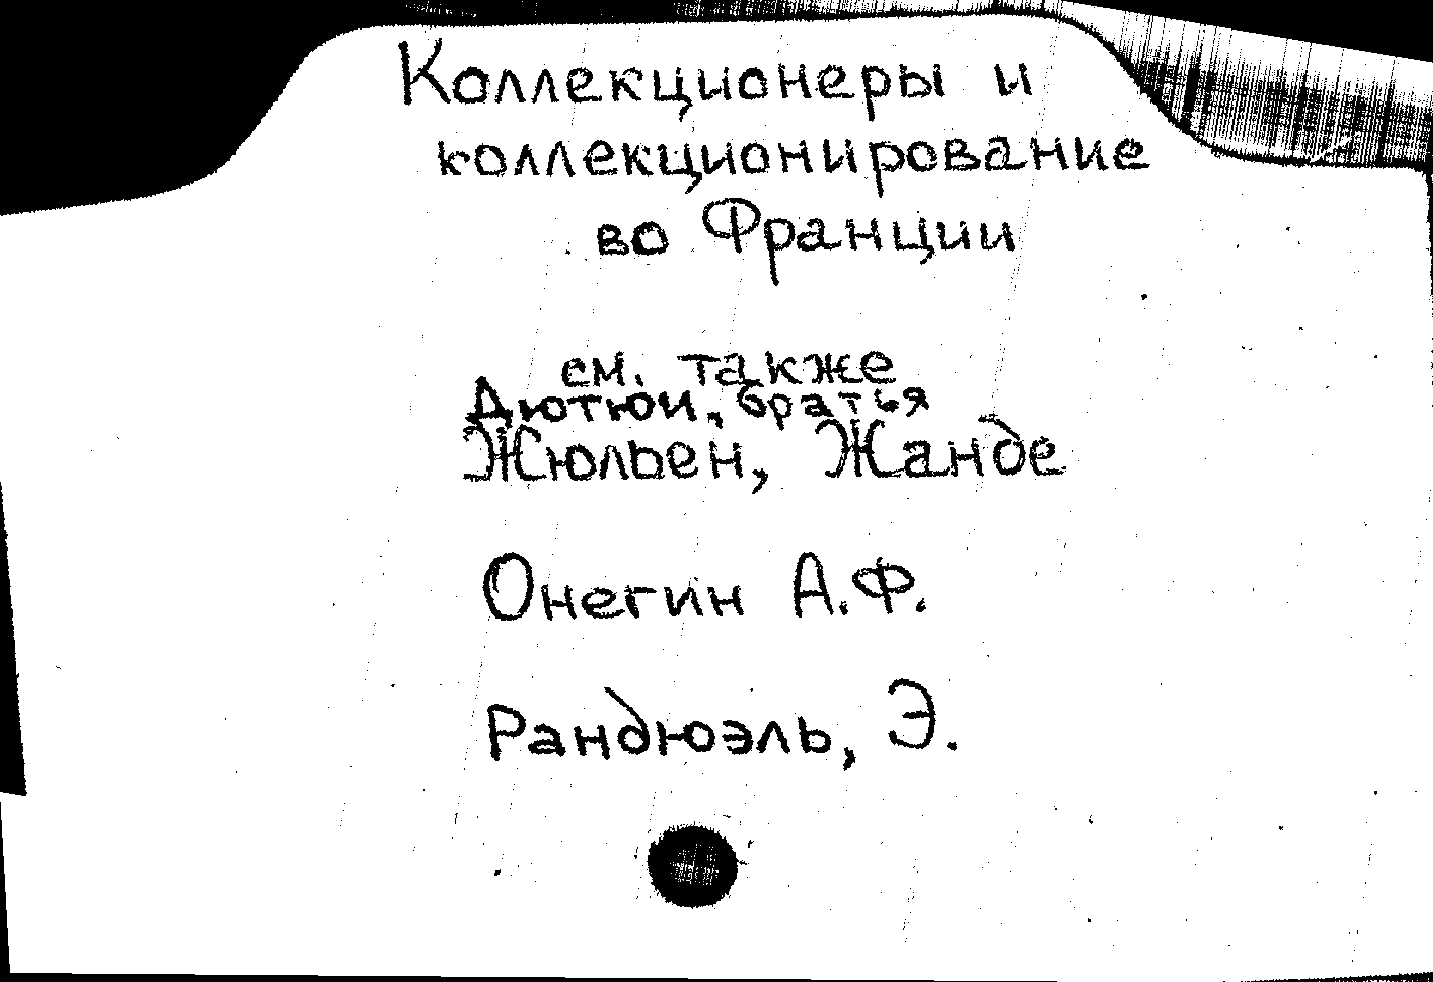 Коллекционеры и
коллекционирование
во Франции
см. также
Дютюи, братья
Жюльен, Жанде
Онегин А.Ф.
Рандюэль, Э.